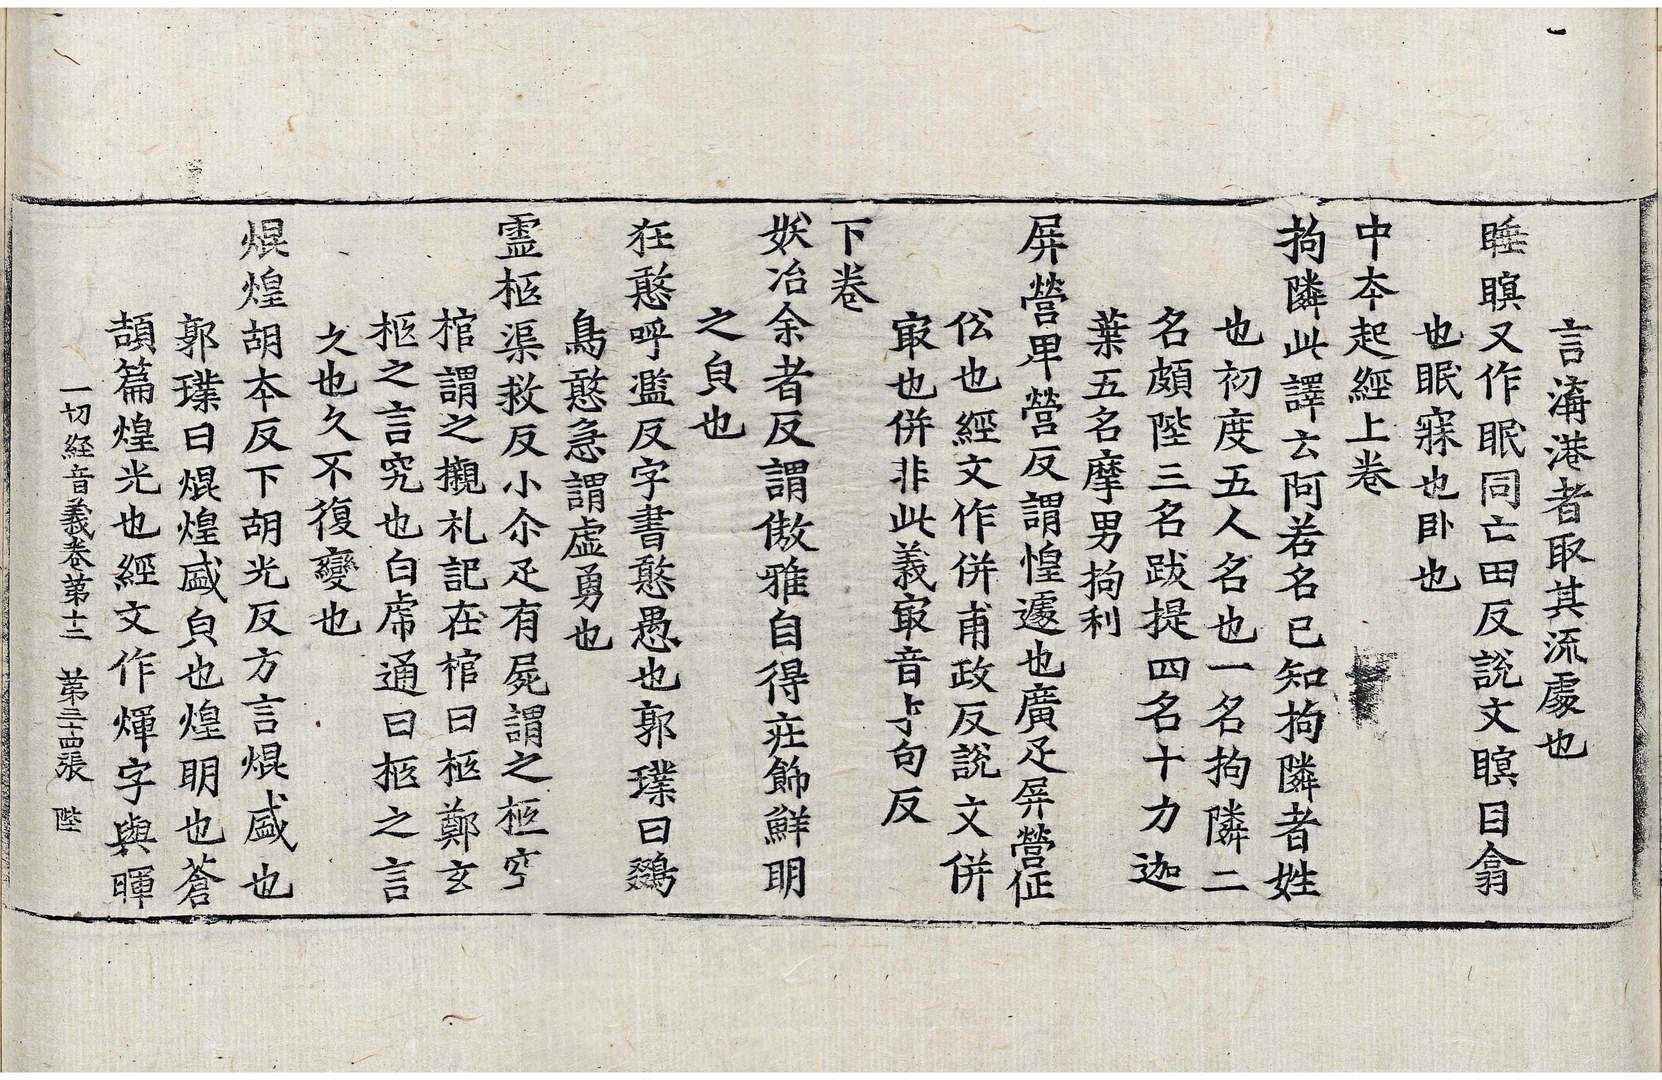 言溝港者取其流處也
睡瞑又作眠同亡田反說文瞑目翕
也眠寐也卧也
中本起經上卷
拘隣此譯云阿若名已知拘隣者姓
也初度五人名也一名拘隣二
名頗陛三名跋提四名十力迦
葉五名摩男拘利
屏營卑營反謂惶遽也廣疋屏營佂
伀也經文作併甫政反說文併
㝡也併非此義㝡音句反
下卷
妖冶余者反謂傲雅自得疘飾鮮明
之皃也
狂憨呼濫反字書憨愚也郭璞曰鵽
鳥憨急謂虛勇也
靈柩渠救反小尒疋有屍謂之柩空
棺謂之櫬礼記在棺曰柩鄭玄
柩之言究也白虎通曰柩之言
久也久不復變也
焜煌胡本反下胡光反方言焜盛也
郭璞曰焜煌盛皃也煌明也蒼
頡篇煌光也經文作煇字與暉
一切經音義卷第十二 第三十四張 陛